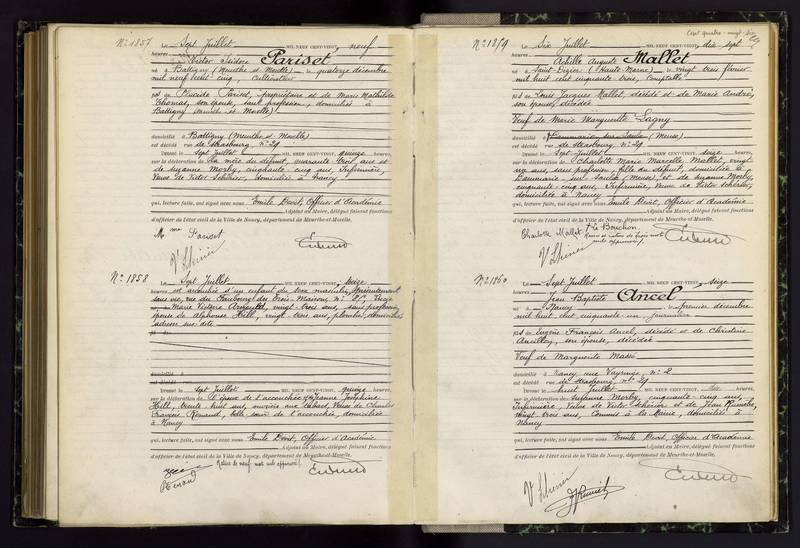 N° 1857
Le Sept Juillet MIL NEUF CENT-VINGT, neuf
heures Victor Isidore Pariset
né à Battigny (Meurthe et Moselle) le quatorze décembre
mil neuf cent cinq, Cultivateur
fils de Placide Pariset, propriétaire et de Marie Mathilde
Thomas, son épouse, sans profession, domiciliés à
Battigny (Meurthe et Moselle)
domicilié à Battigny (Meurthe et Moselle)
est décédé rue de Strasbourg, n° 29
Dressé le sept Juillet MIL NEUF CENT-VINGT, quinze heures,
sur la déclaration de la mère du défunt, quarante trois ans et
de Suzanne Morby, cinquante-cinq ans, Infirmière,
Veuve de Victor Scherier, domiciliée à Nancy
qui, lecture faite, ont signé avec nous Emile Devit, Officier d'Académie
Adjoint au Maire, délégué faisant fonctions
d'officier de l'état civil de la Ville de Nancy, département de Meurthe-et-Moselle.
Mme Pariset
N° 1858
Le Sept Juillet MIL NEUF CENT-VINGT, seize
heures est accouchée d'un enfant du sexe masculin, présentement
sans vie, rue du Faubourg des Trois-Maisons N°
Marie Victoire, vingt-trois ans, sans profession,
épouse de Alphonse Hill, vingt trois ans, plombier, domiciliés
adresse sus-dite
domicilié à
est décédé rue
Dressé le sept Juillet MIL NEUF CENT-VINGT, quinze heures,
sur la déclaration de Jeanne Joséphine
Hill, trente huit ans, ouvrière aux tabacs, Veuve de Charles
François Renaud, belle soeur de l'accouchée, domiciliée
à Nancy
qui, lecture faite, ont signé avec nous Emile Devit, Officier d'Académie
Adjoint au Maire, délégué faisant fonctions
d'officier de l'état civil de la Ville de Nancy, département de Meurthe-et-Moselle.
Cent quatre-vingt-dix
N° 1859
Le Six Juillet MIL NEUF CENT-VINGT, dix sept
heures Achille Auguste Mallet
né à Saint-Dizier (Haute Marne) le vingt trois février
mil huit cent cinquante trois, Comptable
fils de Louis Jacques Mallet, décédé et de Marie André,
son épouse, décédée
Veuf de Marie Marguerite Lagny
domicilié à (Meuse)
est décédé rue de Strasbourg n° 29
Dressé le Sept Juillet MIL NEUF CENT-VINGT, seize heures,
sur la déclaration de Charlotte Marie Marcelle Mallet, vingt
ans, sans profession, fille du défunt, domiciliée à
(Meuse) et de Suzanne Morby,
cinquante-cinq ans, Infirmière, Veuve de Victor Scherier,
domiciliée à Nancy
qui, lecture faite, ont signé avec nous Emile Devit, Officier d'Académie
Adjoint au Maire, délégué faisant fonctions
d'officier de l'état civil de la Ville de Nancy, département de Meurthe-et-Moselle.
Charlotte Mallet
N° 1860
Le Sept Juillet MIL NEUF CENT-VINGT, seize
heures Jean Baptiste Ancel
né à Nancy le premier décembre
mil huit cent cinquante un, journalier
fils de Eugène François Ancel, décédé et de Christine
Ancillon, son épouse, décédée
Veuf de Marguerite Massé
domicilié à Nancy rue Vayringe, n° 2
est décédé rue de Strasbourg n° 29
Dressé le huit Juillet MIL NEUF CENT-VINGT, heures,
sur la déclaration de Suzanne Morby, cinquante-cinq ans,
Infirmière, Veuve de Victor Scherier et de Jean
vingt trois ans, Commis à la Mairie, domiciliés à
Nancy
qui, lecture faite, ont signé avec nous Emile Devit, Officier d'Académie
Adjoint au Maire, délégué faisant fonctions
d'officier de l'état civil de la Ville de Nancy, département de Meurthe-et-Moselle.